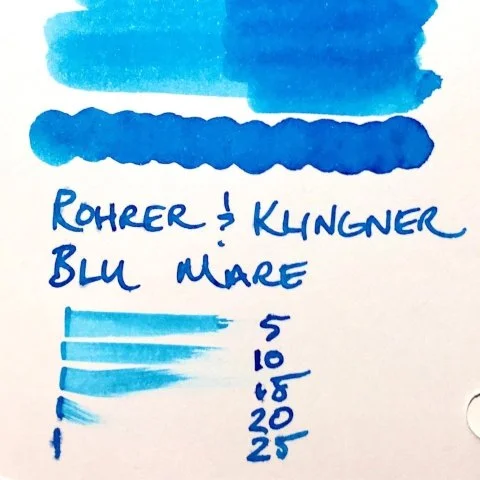 ROHRER & KLINGNER
BLU MARE
5
10
15
20
25